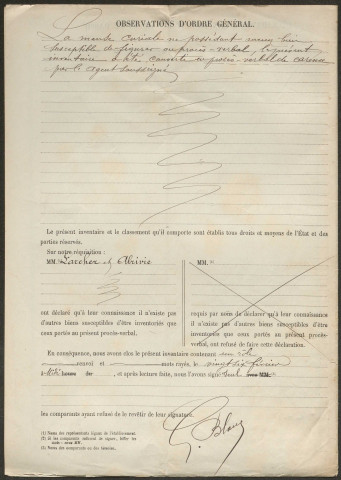 OBSERVATIONS D'ORDRE GÉNÉRAL.
La mense curiale ne possédant aucun bien
susceptible de figurer au procès-verbal, le présent
inventaire a été converti en procès-verbal de carence
par le agent soussigné
Le présent inventaire et le classement qu'il comporte sont établis tous droits et moyens de l'État et des
parties réservés.
Sur notre réquisition :
MM. Larcher et Abrivié
ont déclaré qu'à leur connaissance il n'existe pas
d'autres biens susceptibles d'être inventoriés que
ceux portés au présent procès-verbal.
MM.
requis par nous de déclarer qu'à leur connaissance
il n'existe pas d'autres biens susceptibles d'être
inventoriés que ceux portés au présent procès-
verbal, ont refusé de faire cette déclaration.
En conséquence, nous avons clos le présent inventaire contenant un rôle
renvoi et mots rayés, le vingt six février
et après lecture faite, nous l'avons signé seul avec MM.
les comparants ayant refusé de le revêtir de leur signature.
G. Blanc
(1) Noms des représentants légaux de l'établissement.
(2) Si les comparants refusent de signer, biffer les
mots : avec MM.
(3) Noms des comparants ou des témoins.